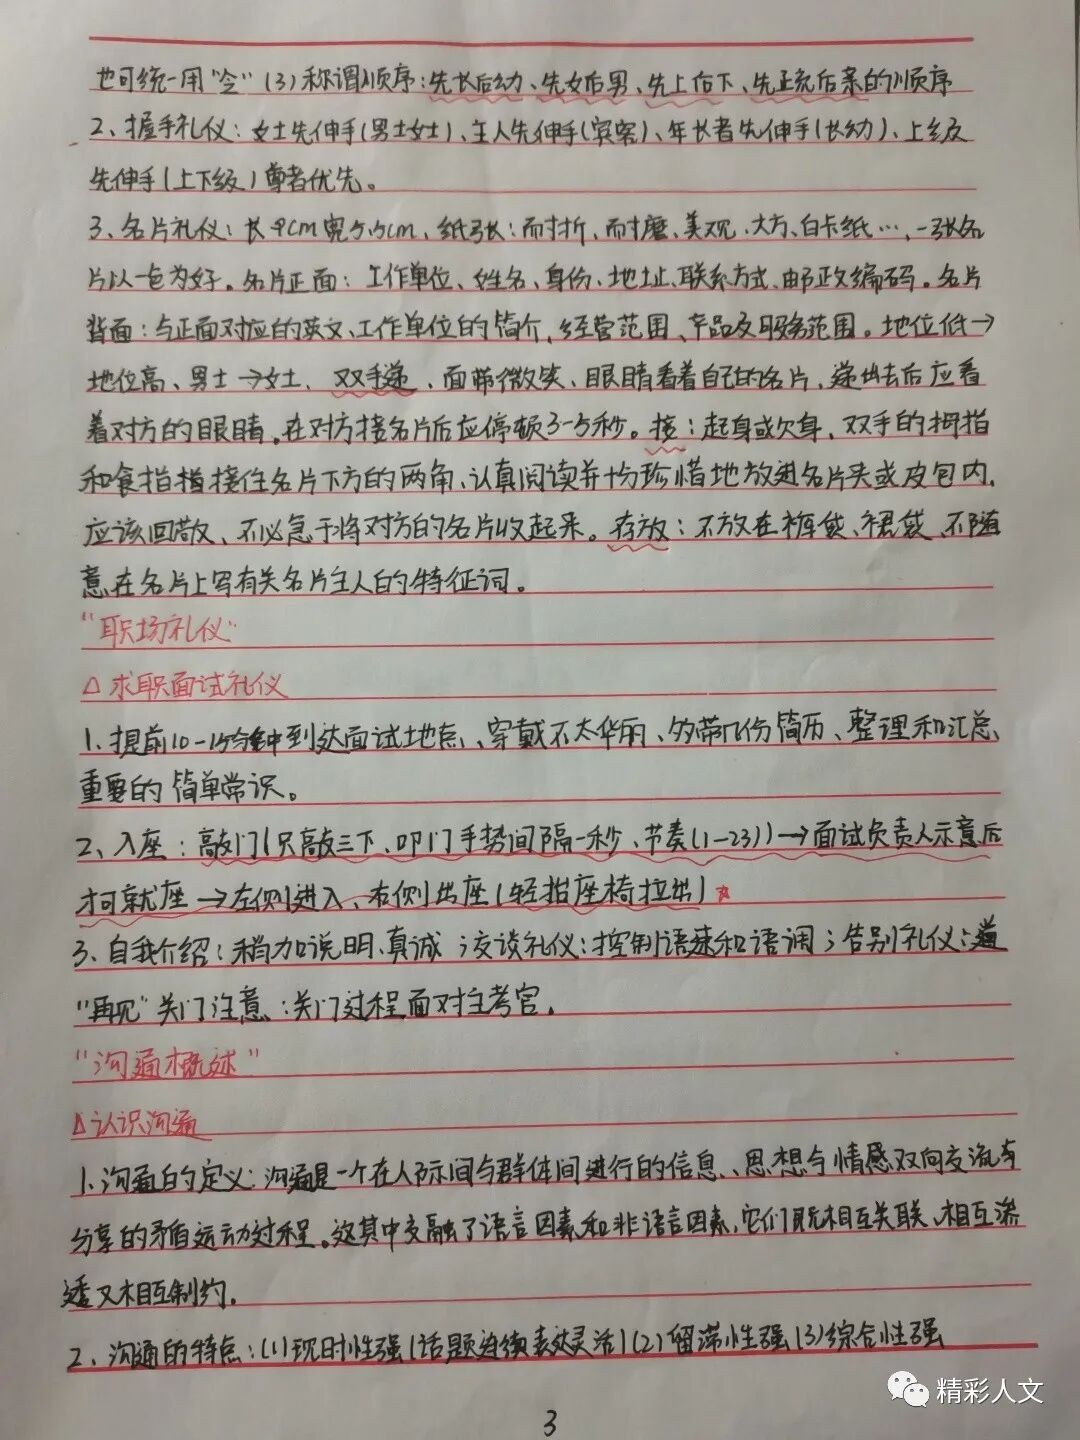 也可统一用“令”(3)称谓顺序:先长后幼、先女后男、先上后下、先正疏后亲的顺序
2、握手礼仪:女士先伸手(男士女士)、主人先伸手(宾客)、年长者先伸手(长幼)、上级
先伸手(上下级)尊者优先。
3、名片礼仪:长9cm宽5.5cm、纸张:耐折、耐磨、美观、大方、白卡纸…,一张名
片以一色为好。名片正面:工作单位、姓名、身份、地址、联系方式、邮政编码。名片
背面:与正面对应的英文、工作单位的简介,经营范围、产品及服务范围。地位低→
地位高、男士→女士、双手递、面带微笑、眼睛看着自己的名片,递出去后应看
着对方的眼睛。在对方接名片后应停顿3-5秒。接:起身或欠身,双手的拇指
和食指接住名片下方的两角、认真阅读并十分珍惜地放进名片夹或皮包内,
应该回敬、不必急于将对方的名片收起来。存放:不放在裤袋、裙袋、不随
意在名片上写有关名片主人的特征词。
“职场礼仪”
△求职面试礼仪
1、提前10-15分钟到达面试地点、穿戴不太华丽、多带几份简历、整理和汇总
重要的简单常识。
2、入座:敲门(只敲三下、叩门手势间隔一秒、节奏(1-23))→面试负责人示意后
才可就座→左侧进入、右侧出座(轻抬座椅拉出)
3、自我介绍:稍加说明、真诚;交谈礼仪:控制语速和语调;告别礼仪:道
“再见”关门注意:关门过程面对主考官。
“沟通概述”
△认识沟通
1、沟通的定义:沟通是一个在人际间与群体间进行的信息、思想与情感双向交流与
分享的矛盾运动过程。这其中交融了语言因素和非语言因素,它们既相互关联、相互渗
透又相互制约。
2、沟通的特点:(1)现时性强(话题连续表达灵活)(2)留滞性强(3)综合性强
3
精彩人文